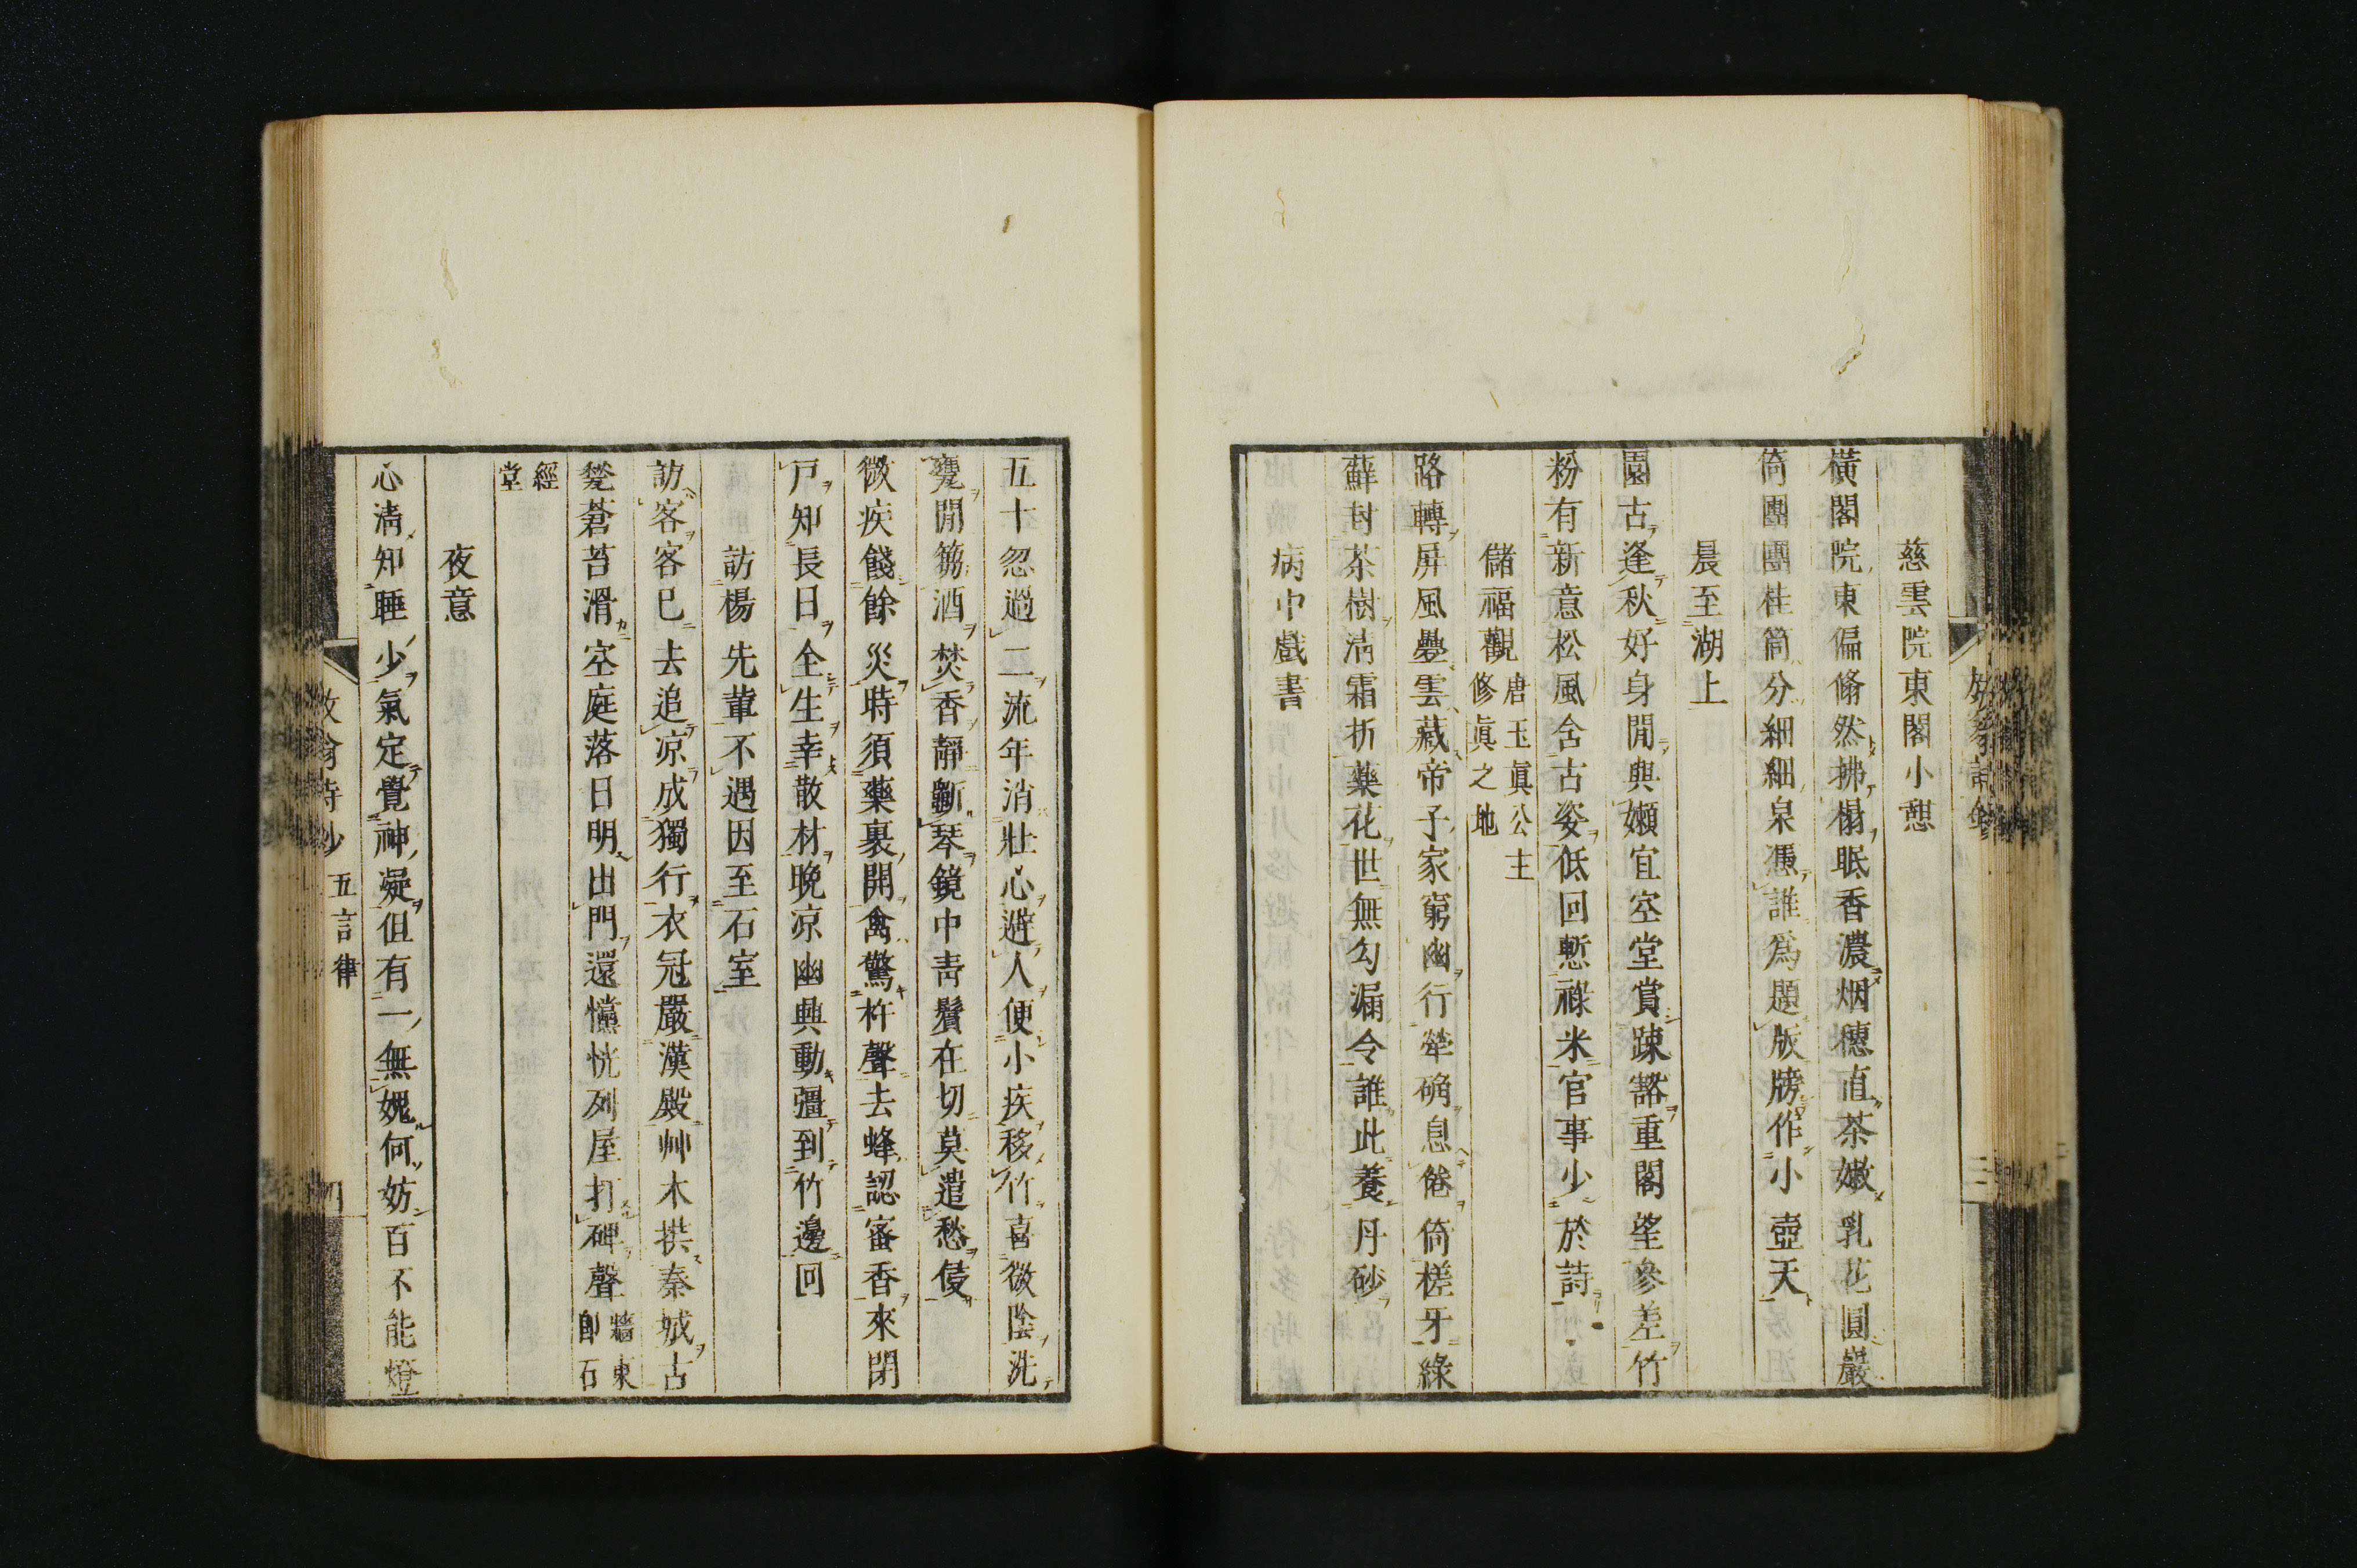 慈雲院東閣小憩
橫閣院東偏翛然拂榻眠香濃烟穗直茶嫩乳花圓巖
倚團團桂筒分細細泉憑誰爲題版牓作小壺天
晨至湖上
園古逢秋好身閒與嬾宜空堂賞踈豁重閣望參差竹
粉有新意松風含古姿低回慙祿米官事少於詩
儲福觀唐玉眞公主修眞之地
路轉屏風疊雲藏帝子家窮幽行犖确息倦倚槎牙綠
蘚封茶樹清霜折藥花世無勾漏令誰此養丹砂
病中戲書
五十忽過二流年消壯心避人便小疾移竹喜微陰洗
甕閒篘酒焚香靜斵琴鏡中靑鬢在切莫遣愁侵
微疾餞餘災時須藥裹開禽驚杵聲去蜂認蜜香來閉
戶知長日全生幸散材晚凉幽興動彊到竹邊回
訪楊先輩不遇因至石室
訪客客已去追凉成獨行衣冠嚴漢殿艸木拱秦城古
甃蒼苔滑空庭落日明出門還懭恍列屋打碑聲牆東卽石
經堂
夜意
心淸知睡少氣定覺神凝但有一無媿何妨百不能燈
五言律